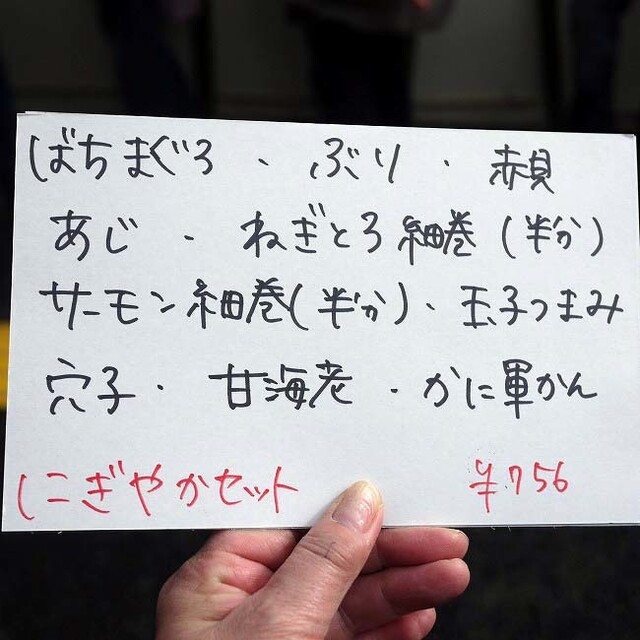 ばちまぐろ・ぶり・赤貝
あじ・ねぎとろ細巻(半分)
サーモン細巻(半分)・玉子つまみ
穴子・甘海老・かに軍かん
にぎやかセット ¥756